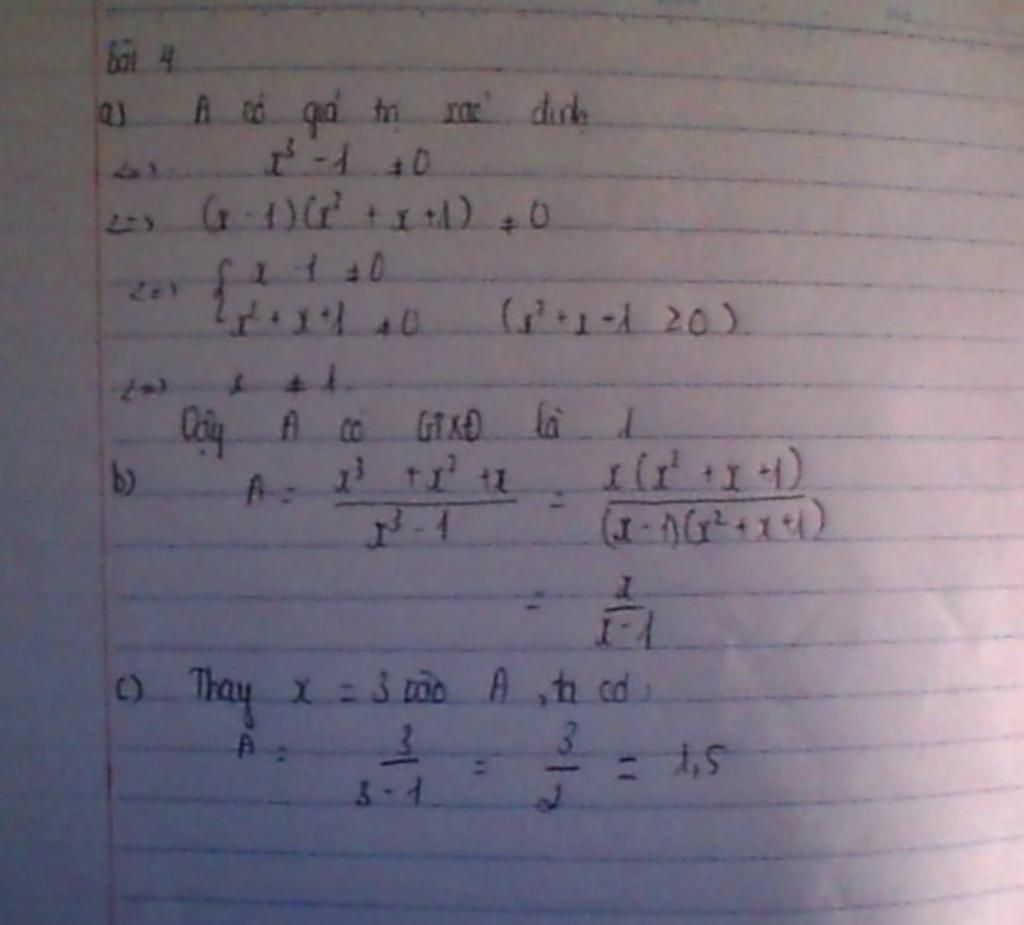 Bài 4
a) A có giá trị xác định
<=> x³ - 1 ≠ 0
<=> (x - 1)(x² + x + 1) ≠ 0
<=> { x - 1 ≠ 0
x² + x + 1 ≠ 0 (x² + x + 1 ≥ 0)
<=> x ≠ 1.
Vậy A có GTXĐ là 1
b) A = \frac{x³ + x² + x}{x³ - 1} = \frac{x(x² + x + 1)}{(x - 1)(x² + x + 1)}
= \frac{x}{x - 1}
c) Thay x = 3 vào A, ta có:
A = \frac{3}{3 - 1} = \frac{3}{2} = 1,5